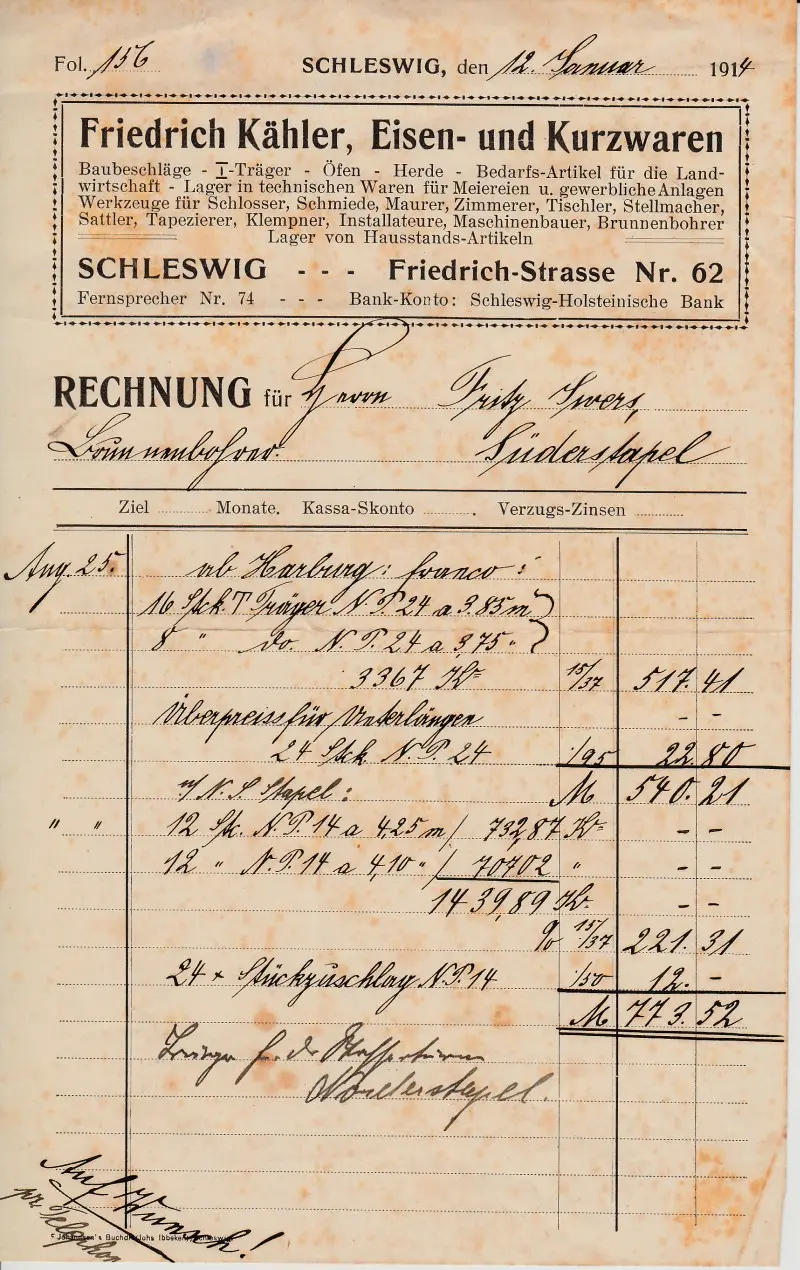 Fol. 156 SCHLESWIG, den 12. Januar 1914
Friedrich Kähler, Eisen- und Kurzwaren
Baubeschläge - I-Träger - Öfen - Herde - Bedarfs-Artikel für die Land-
wirtschaft - Lager in technischen Waren für Meiereien u. gewerbliche Anlagen
Werkzeuge für Schlosser, Schmiede, Maurer, Zimmerer, Tischler, Stellmacher,
Sattler, Tapezierer, Klempner, Installateure, Maschinenbauer, Brunnenbohrer
Lager von Hausstands-Artikeln
SCHLESWIG - - - Friedrich-Strasse Nr. 62
Fernsprecher Nr. 74 - - - Bank-Konto: Schleswig-Holsteinische Bank
RECHNUNG für Herrn Fritz Sivers,
Brunnenbohrer. Süderstapel
Ziel Monate. Kassa-Skonto . Verzugs-Zinsen
Aug. 25. ab Harburg: franco:
16 Stck. T Träger N.P. 24 a 3.85 m
8 " do. N.P. 24 a 3,75 "
3367 Ko 15/37 517.41
Überpreiss für Unterlängen - -
24 Stck N.P. 24 /95 22.80
N. S. Stapel: M 540.21
" " 12 Stk. N.P. 14 a 4,25 m / 732,87 Ko - -
12 " N.P. 14 a 4,10 " / 70702 " - -
1439,89 Ko - -
% 15/37 221.31
24 x Stückzuschlag N.P. 14 /50 12.-
M 773.52
f. d. Wasserturm
Norderstapel.
Auf Wunsch!
pr. Telephon
Johannsen's Buchdr. (Johs Ibbeken), Schleswig